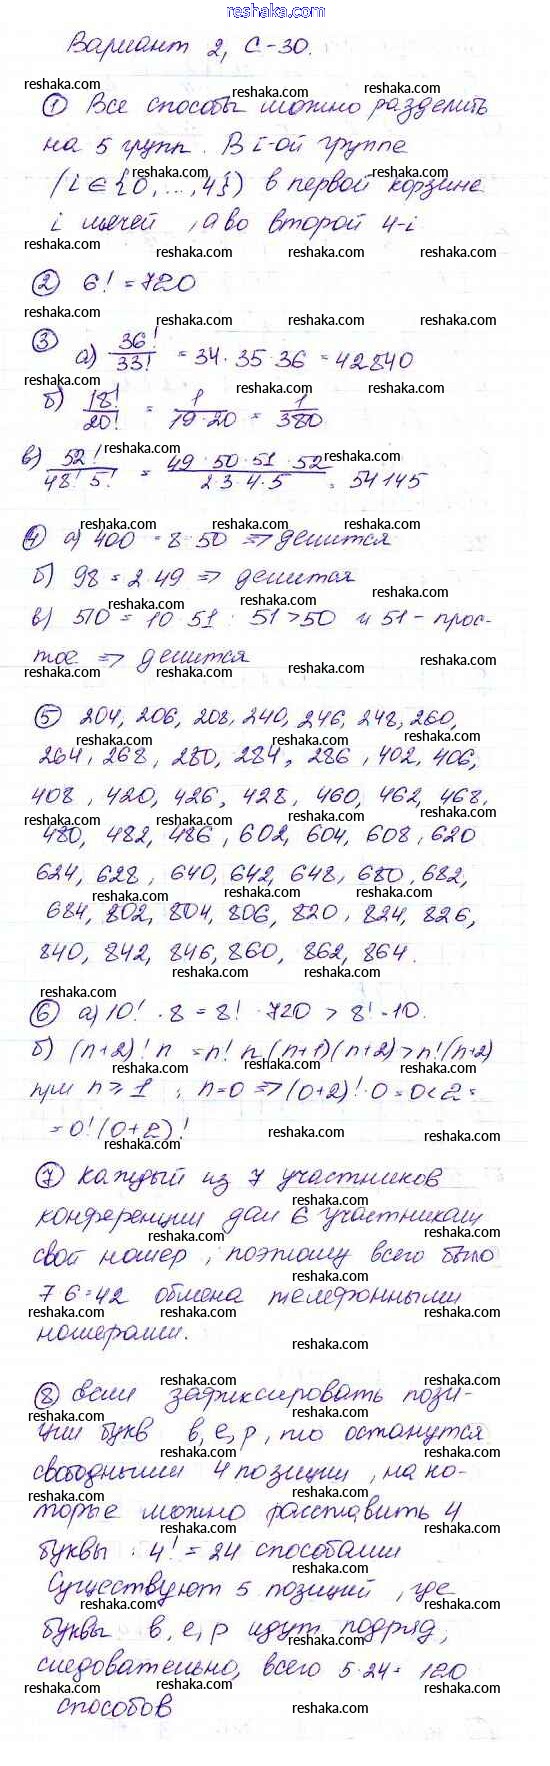 www.reshaka.com
Вариант 2, С-30.
① Все способы можно разделить
на 5 групп. В i-ой группе
(i ∈ {0, ..., 4}) в первой корзине
i мячей, а во второй 4-i
② 6! = 720
③ а) 36!/33! = 34·35·36 = 42840
б) 18!/20! = 1/19·20 = 1/380
в) 52!/48! 5! = 49·50·51·52/2·3·4·5 = 54145
④ а) 400 = 8·50 => делится
б) 98 = 2·49 => делится
в) 510 = 10·51 : 51>50 и 51 - прос-
тое => делится
⑤ 204, 206, 208, 240, 246, 248, 260,
264, 268, 280, 284, 286, 402, 406,
408, 420, 426, 428, 460, 462, 468,
480, 482, 486, 602, 604, 608, 620
624, 628, 640, 642, 648, 680, 682,
684, 802, 804, 806, 820, 824, 826,
840, 842, 846, 860, 862, 864.
⑥ а) 10! · 8 = 8! · 720 > 8! · 10.
б) (n+2)! n = n! n (n+1)(n+2) > n!(n+2)
при n ≥ 1 ; n=0 => (0+2)!·0 = 0 < 2 =
= 0!(0+2)!
⑦ Каждый из 7 участников
конференции дал 6 участникам
свой номер, поэтому всего было
7·6=42 обмена телефонными
номерами.
⑧ Если зафиксировать пози-
ции букв в, е, р, то останутся
свободными 4 позиции, на ко-
торые можно расставить 4
буквы 4! = 24 способами
Существуют 5 позиций, где
буквы в, е, р идут подряд,
следовательно, всего 5·24 = 120
способов